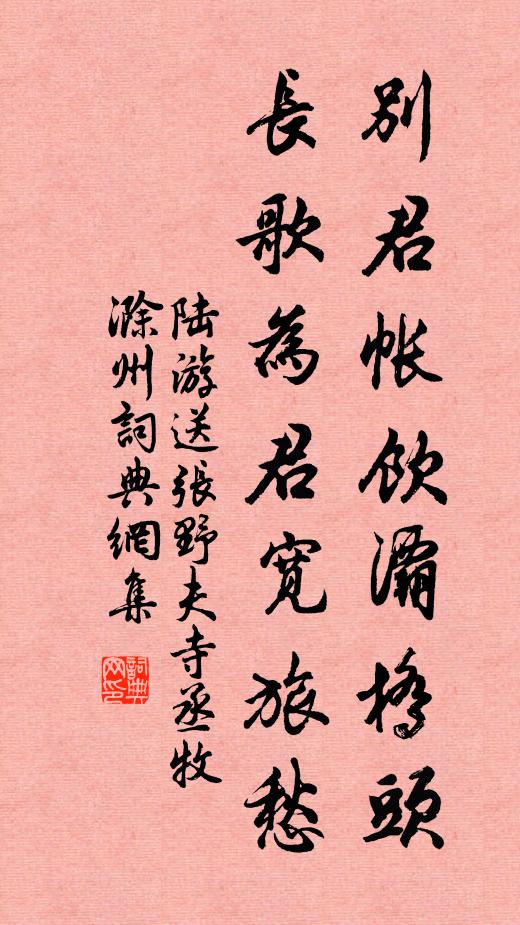 別君帐飲灞橋頭
長歌為君寬旅愁
陆游送張野夫寺丞牧
滁州詞典網集
詞典网印